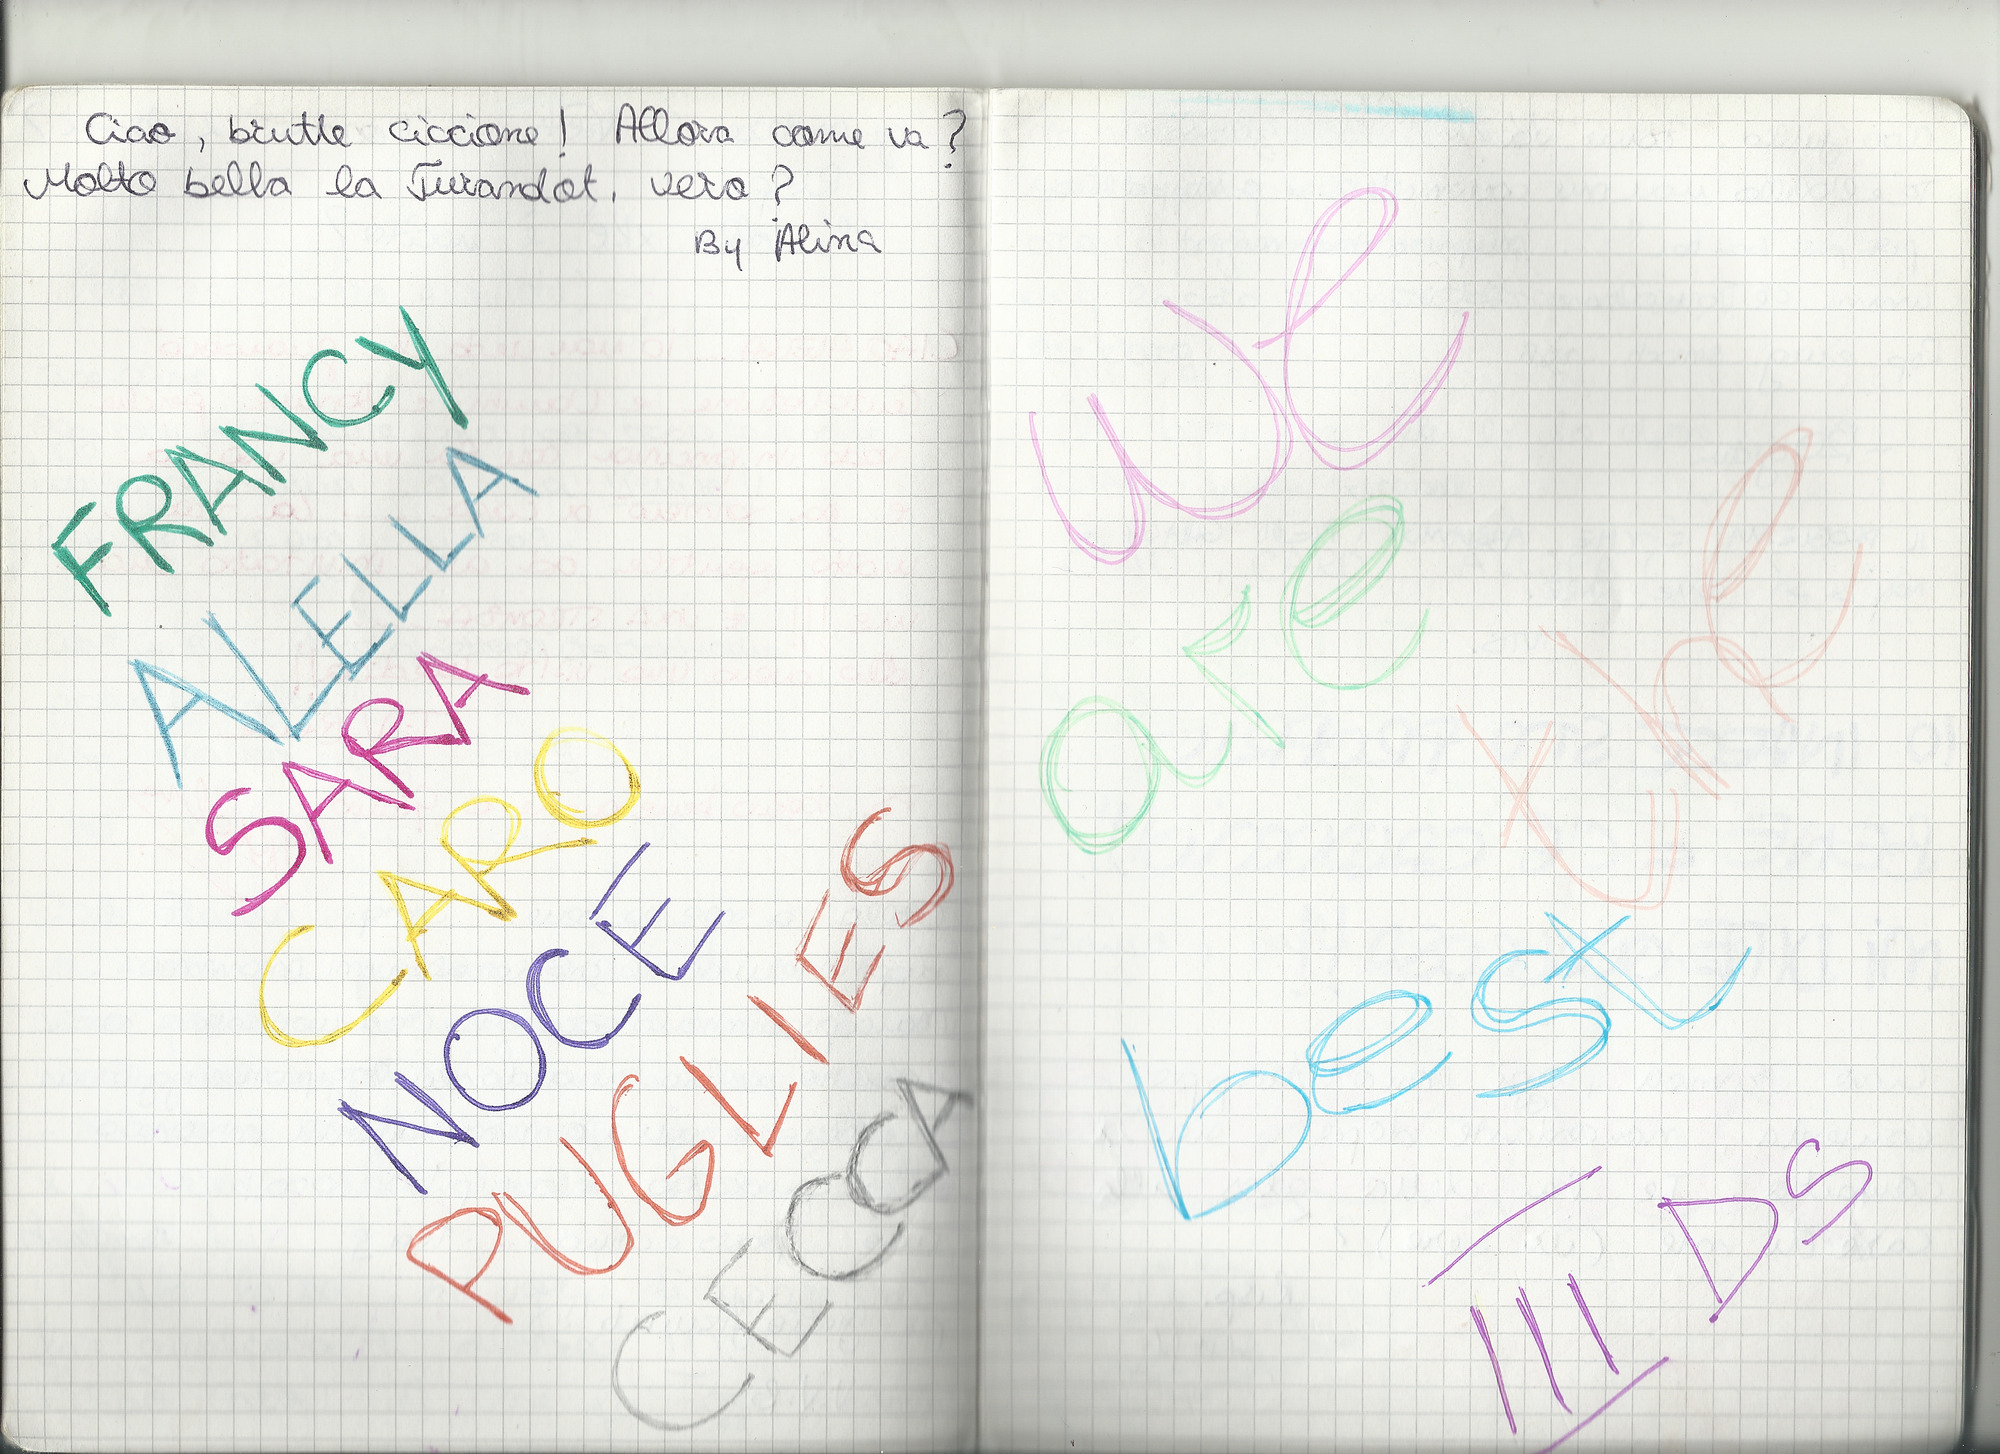 Ciao, brutte ciccione! Allora come va?
Molto bella la Turandot, vero?
By Alina
FRANCY
ALELLA
SARA
CARO
NOCE
PUGLIES
CECCA
we
are
the
best
III DS